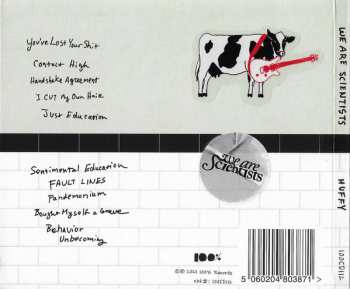 You've Lost Your Shit
Contact High
Handshake Agreement
I Cut My Own Hair
Just Education
Sentimental Education
FAULT LINES
Pandemonium
Bought Myself a Grave
Behavior
Unbecoming
We are
Scientists
100%
5060204803871
WE ARE SCIENTISTS
HUFFY